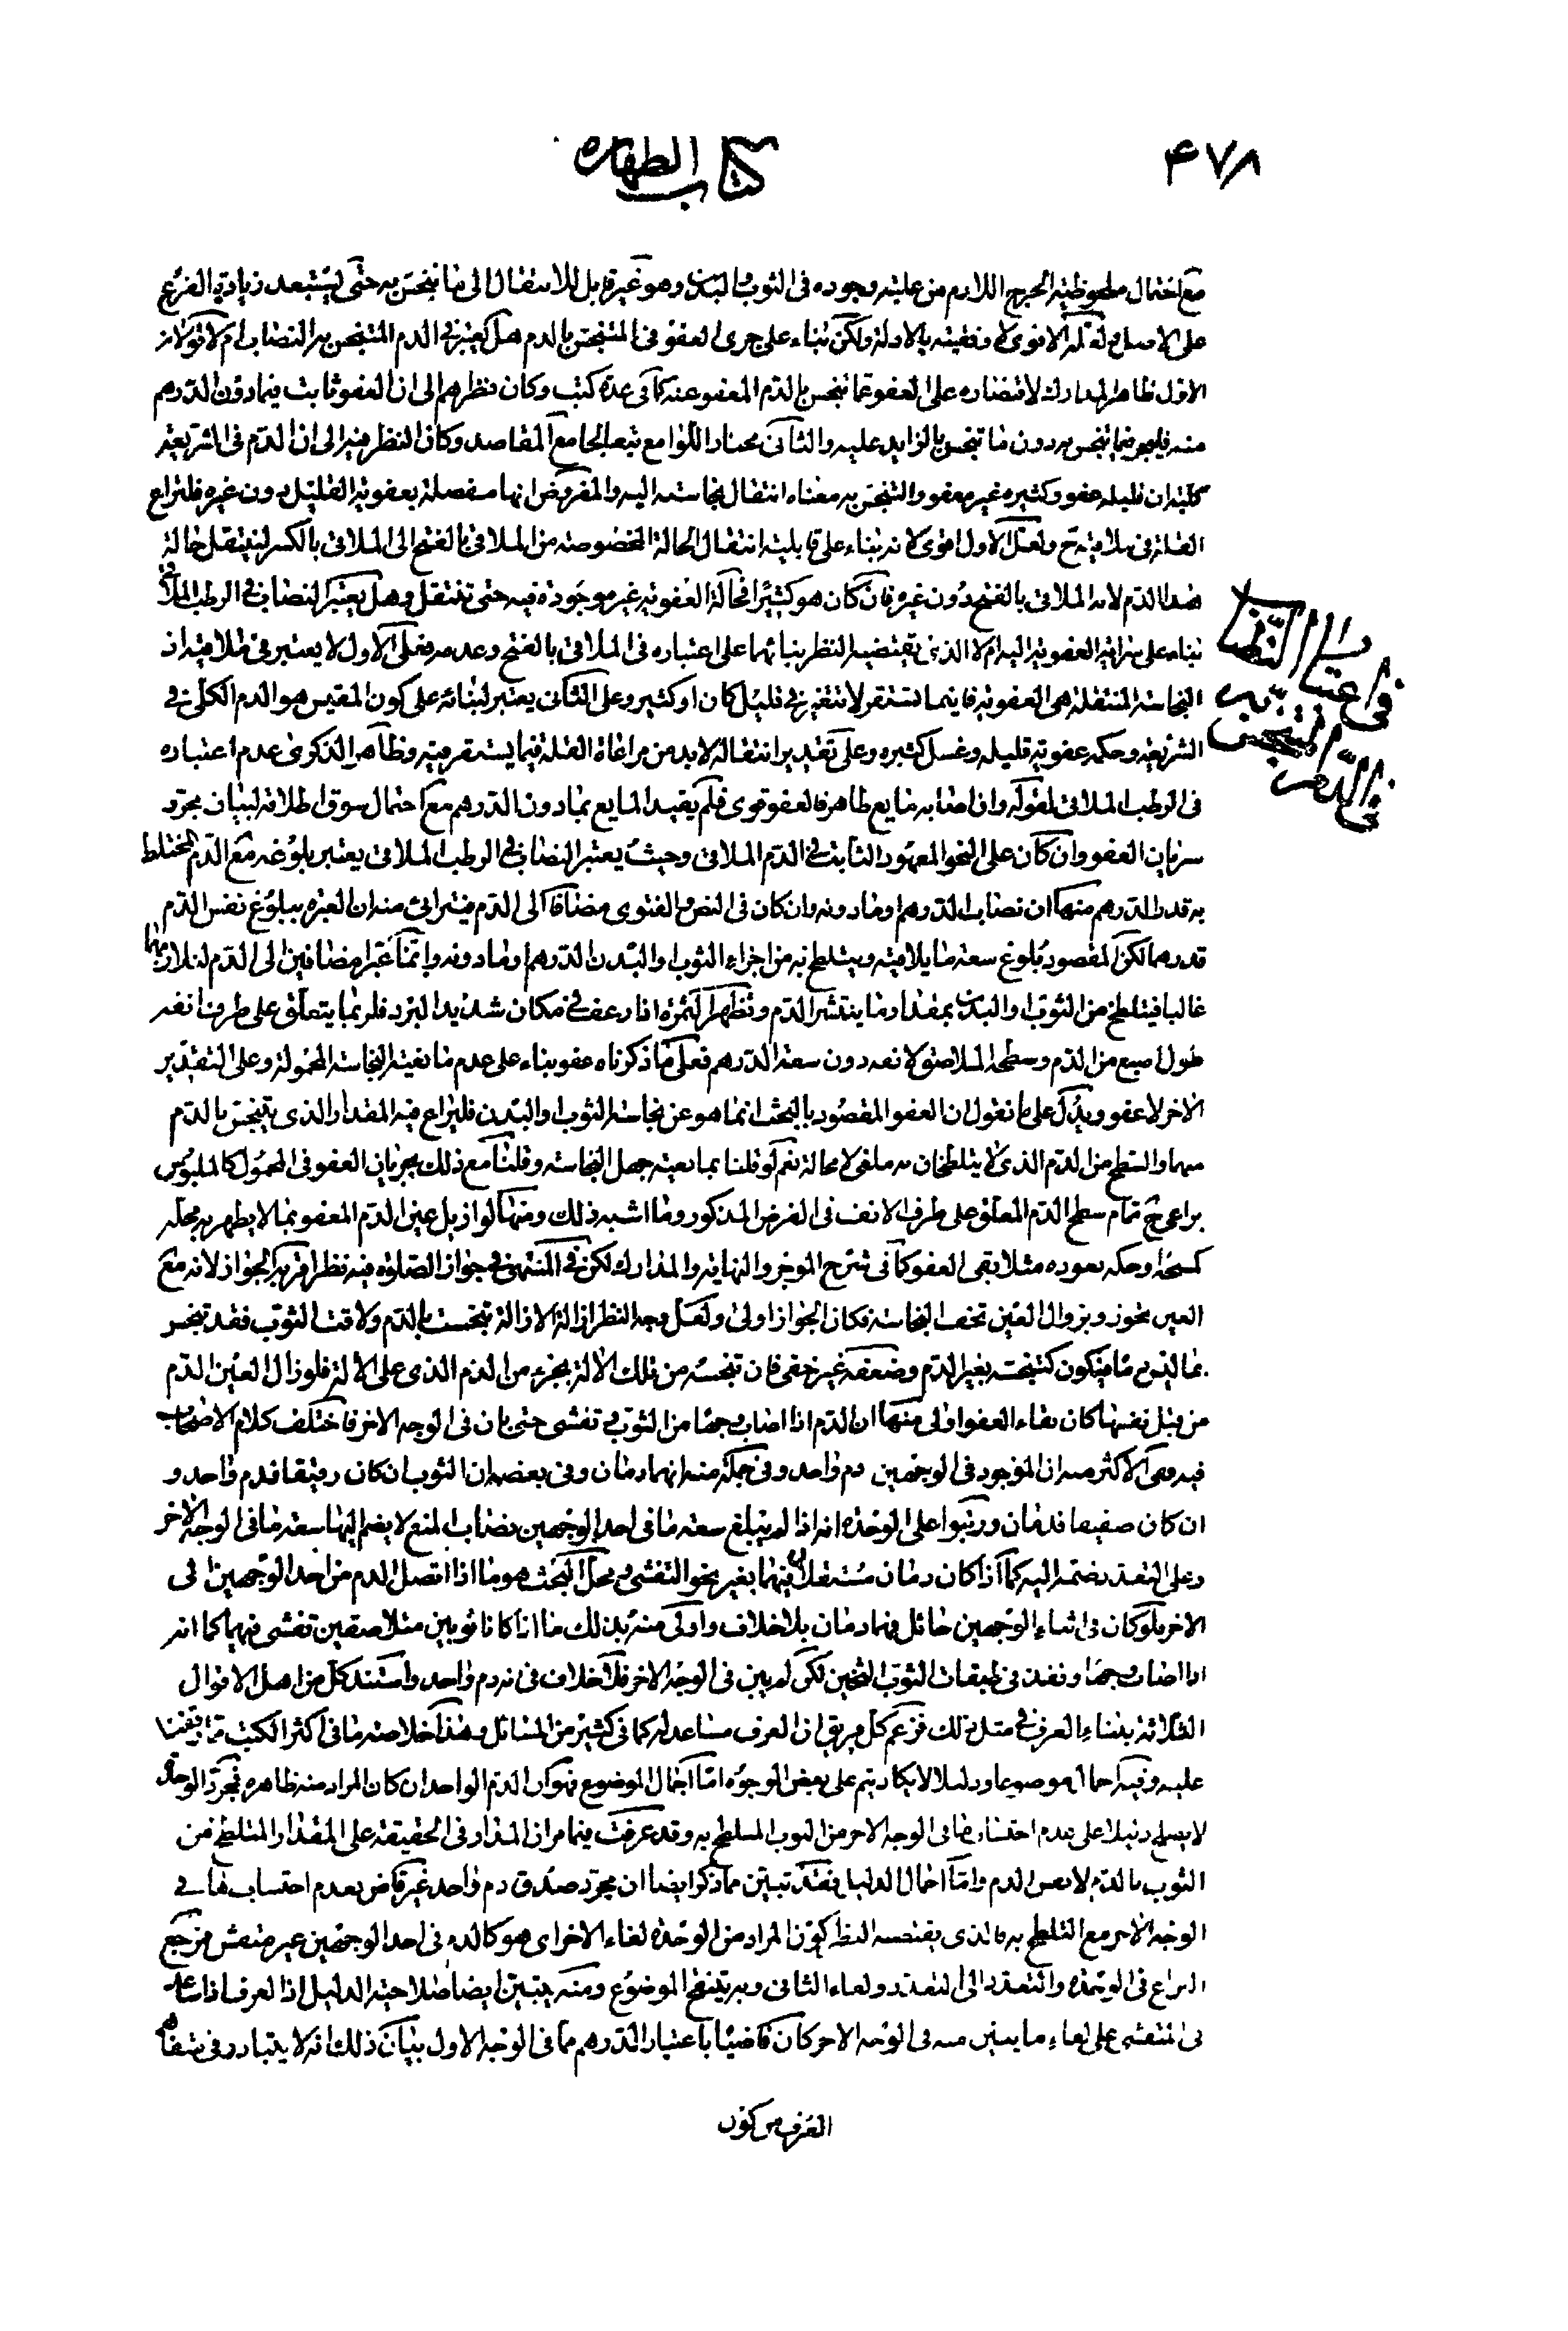 ۴۷۸
كتاب الطهارة
مع احتمال ملحوظية الحرج اللازم من غلبة وجوده في الثوب والبدن وهو غير قابل للانتقال الى ما تنجس به حتى يستبعد زيادة الفرع
على الاصل ولعله الاقوى لاوفقيته بالادلة ولكن بناء على جرى العفو في المتنجس بالدم هل يعتبر في الدم المتنجس به النصاب ام لا قولان
الاول ظاهر المدارك لاقتضاره على العفو عما نجس بالدم المعفو عنه كما في عدة كتب وكان نظرهم الى ان العفو ثابت فيما دون الدرهم
منه فليجر فيما تنجس به دون ما تنجس بالزايد عليه والثاني مختار اللوامع تبعا لجامع المقاصد وكان النظر فيه الى ان الدم في الشريعة
كلية ان قليله عفو وكثيره غير معفو والتنجس به معناه انتقال نجاسته اليه والمفروض انها مفصلة بعفوية القليل دون غيره فليراع
القلة في ملاقيه ح ولعل الاول اقوى لانه بناء على قابلية انتقال الحالة المخصوصة من الملاقى بالفتح الى الملاقى بالكسر لينتقل حالة
هذا الدم لانه الملاقى بالفتح دون غيره فان كان هو كثيرا فحالة العفوية غير موجودة فيه حتى تنتقل وهل يعتبر النصاب في الرطب الملاقى
بناء على سراية العفوية اليه ام لا الذي يقتضيه النظر بنائهما على اعتباره في الملاقى بالفتح وعدمه فعلى الاول لا يعتبر في ملاقيه اذ
النجاسة المنتقلة هي العفوية فاينما تستقر لا تتغير في قليل كان او كثير وعلى الثاني يعتبر لبنائه على كون المقيس هو الدم الكلي في
الشريعة وحكمه عفوية قليله وغسل كثيره وعلى تقدير انتقاله لابد من مراعاة القلة فيما يستقر فيه وظاهر الذكرى عدم اعتباره
في الرطب الملاقى لقوله وان اصابه مايع طاهر فالعفو قوى فلم يقيد المايع بما دون الدرهم مع احتمال سوق اطلاقه لبيان مجرد
سريان العفو وان كان على النحو المعهود الثابت في الدم الملاقى وحيث يعتبر النصاب في الرطب الملاقى يعتبر بلوغه مع الدم المختلط
به قدر الدرهم منها ان نصاب الدرهم وما دونه وان كان في النص والفتوى مضافا الى الدم فيترائى منه ان العبرة ببلوغ نفس الدم
قدرهما لكن المقصود بلوغ سعة ما يلاقيه ويتلطخ به من اجزاء الثوب والبدن الدرهم او ما دونه وانما عبرا مضافين الى الدم لتلازمهما
غالبا فيتلطخ من الثوب والبدن بمقدار ما ينتشر الدم وتظهر الثمرة اذا رعف في مكان شديد البرد فلربما يتعلق على طرف انفه
طول اصبع من الدم وسطحه الملاصق لانفه دون سعة الدرهم فعلى ما ذكرناه عفو بناء على عدم مانعية النجاسة المحمولة وعلى التقدير
الاخر لا عفو ويدل على ما نقول ان العفو المقصود بالبحث انما هو عن نجاسة الثوب والبدن فليراع فيه المقدار الذي يتنجس بالدم
منهما والسطح من الدم الذي لا يتلطخان به ملغى لا محالة نعم لو قلنا بمانعية حمل النجاسة وقلنا مع ذلك بجريان العفو في المحمول كالملبوس
يراعى ح تمام سطح الدم المعلق على طرف الانف في الفرض المذكور وما اشبه ذلك ومنها لو ازيل عين الدم المعفو بما لا يطهر به محله
كمسحه او حكه بعوده مثلا بقى العفو كما في شرح الموجز والنهاية والمدارك لكن في المنتهى في جواز الصلوة فيه نظر اقربه الجواز لانه مع
العين يجوز وبزوال العين تخف النجاسة فكان الجواز اولى ولعل وجه النظر ان الة الازالة تنجست بالدم ولاقت الثوب فقد تنجس
من قبل نفسها كان بقاء العفو اولى منها ان الدم اذا اصاب وجها من الثوب وتفشى حتى بان في الوجه الاخر فاختلف كلام الاصحاب
فيه فعن الاكثر منه ان الموجود في الوجهين دم واحد وفي جملة منه انهما دمان وفي بعضه ان الثوب ان كان رقيقا فدم واحد و
ان كان صفيقا فدمان ورتبوا على الوحدة انه اذا لم يبلغ سعة ما في احد الوجهين نصاب المنع لا يضم اليها سعة ما في الوجه الاخر
وعلى التعدد يضمه اليه كما اذا كان دمان مستقلان فيهما بغير نحو التفشى ومحل البحث هو ما اذا اتصل الدم من احد الوجهين الى
الاخر فلو كان في اثناء الوجهين حائل فهما دمان بلا خلاف واولى منه بذلك ما اذا كانا ثوبين متلاصقين تفشى فيهما كما انه
اذا اصاب وجها ونفذ في طبقات الثوب الثخين لكن لم يبن في الوجه الاخر فلا خلاف في انه دم واحد واستند كل من اهل الاقوال
الثلاثة بقضاء العرف في مثل ذلك فزعم كل فريق ان العرف مساعد له كما في كثير من المسائل وهذا خلاصة ما في اكثر الكتب
عليه وفيه اجمال موضوعا ودليلا لا يكاد يتم على بعض الوجوه اما اجمال الموضوع فهو ان الدم الواحد ان كان المراد منه ظاهره فمجرد الوحدة
لا يصلح دليلا على عدم احتساب ما في الوجه الاخر من الثوب المتلطخ به وقد عرفت فيما مر ان المدار في الحقيقة على المقدار المتلطخ من
الثوب بالدم لا نفس الدم واما اجمال الدليل فقد تبين مما ذكر ايضا ان مجرد صدق دم واحد غير قاض بعدم احتساب ما في
الوجه الاخر مع التلطخ به فالذي يقتضيه النظر كون المراد من الوحدة لغاء الاخر اي هو كالدم في احد الوجهين غير متفش فمرجع
النزاع في الوحدة والتعدد الى التعدد ولغاء الثاني وبه يتنقح الموضوع ومنه يتبين ايضا صلاحية الدليل اذا العرف اذا
في المتفشى على لغاء ما يبين منه في الوجه الاخر كان قاضيا باعتبار الدرهم مما في الوجه الاول بيان ذلك انه لا يتبادر في متفاهم
العرف من كون
في اعتبار النصاب
في الدهن المتنجس به